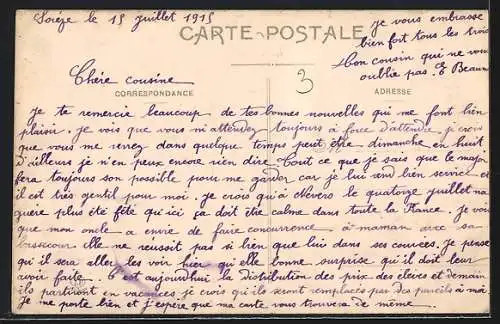 Sorèze le 15 juillet 1915
CARTE POSTALE
je vous embrasse
bien fort tous les trois
Ton cousin qui ne vous
oublie pas. E Beaum
Chère cousine
3
CORRESPONDANCE
ADRESSE
Je te remercie beaucoup de tes bonnes nouvelles qui me font bien
plaisir. Je vois que vous m'attendez toujours à force d'attendre je crois
que vous me verez dans quelque temps peut être dimanche en huit
d'ailleurs je n'en peux encore rien dire. Tout ce que je sais que le major
fera toujours son possible pour me garder car je lui rend bien service et
il est très gentil pour moi. Je crois qu'à Nevers le quatorze juillet n'a
guère plus été fêté qu'ici ça doit être calme dans toute la France. Je vois
que mon oncle a envie de faire concurrence à maman avec sa
elle ne reussit pas si bien que lui dans ses couvées. Je pense
qu'il sera aller les voir hier qu'elle bonne surprise qu'il doit leur
avoir faite. C'est aujourd'hui la distribution des prix des élèves et demain
ils partiront en vacances je crois qu'ils seront remplacés par des pareils à moi
Je me porte bien et j'espère que ma carte vous trouvera de même.